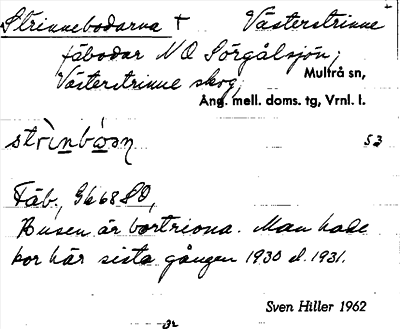 Strinnebodarna † Västerstrinne
fäbodar NO Sörgålsjön,
Västerstrinne skog,
Multrå sn,
Ång. mell. doms. tg, Vrnl. l.
strìnbòan 53
Fäb., Gk 68 SO,
Husen är bortrivna. Man hade
kor här sista gången 1930 el. 1931.
Sven Hiller 1962
32